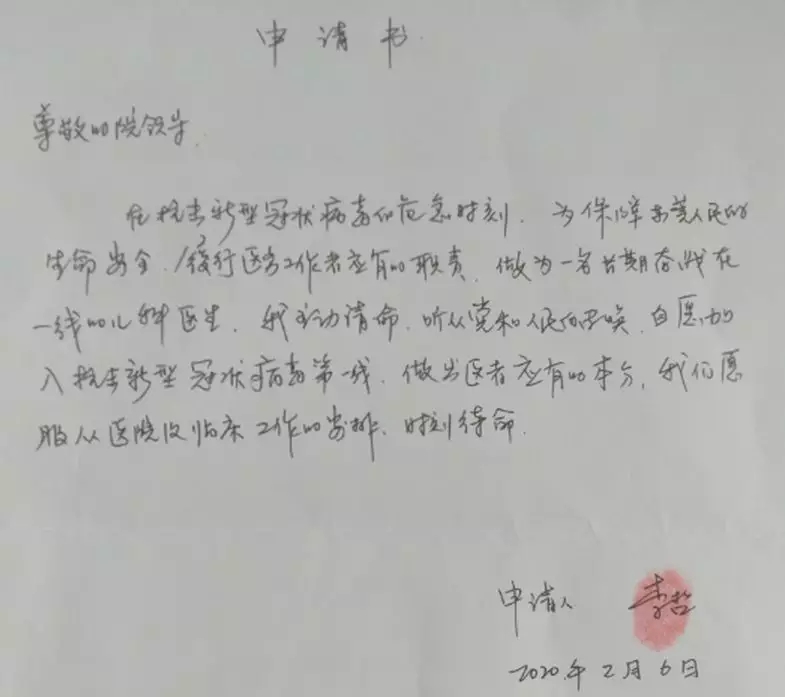 申请书
尊敬的院领导
在抗击新型冠状病毒的危急时刻，为保障东莞人民的
生命安全，履行医务工作者应有的职责，做为一名长期奋战在
一线的儿科医生，我主动请命，听从党和人民的召唤，自愿加
入抗击新型冠状病毒第一线，做出医者应有的本分，我们愿
服从医院及临床工作的安排，时刻待命。
申请人 李哲
2020年2月6日